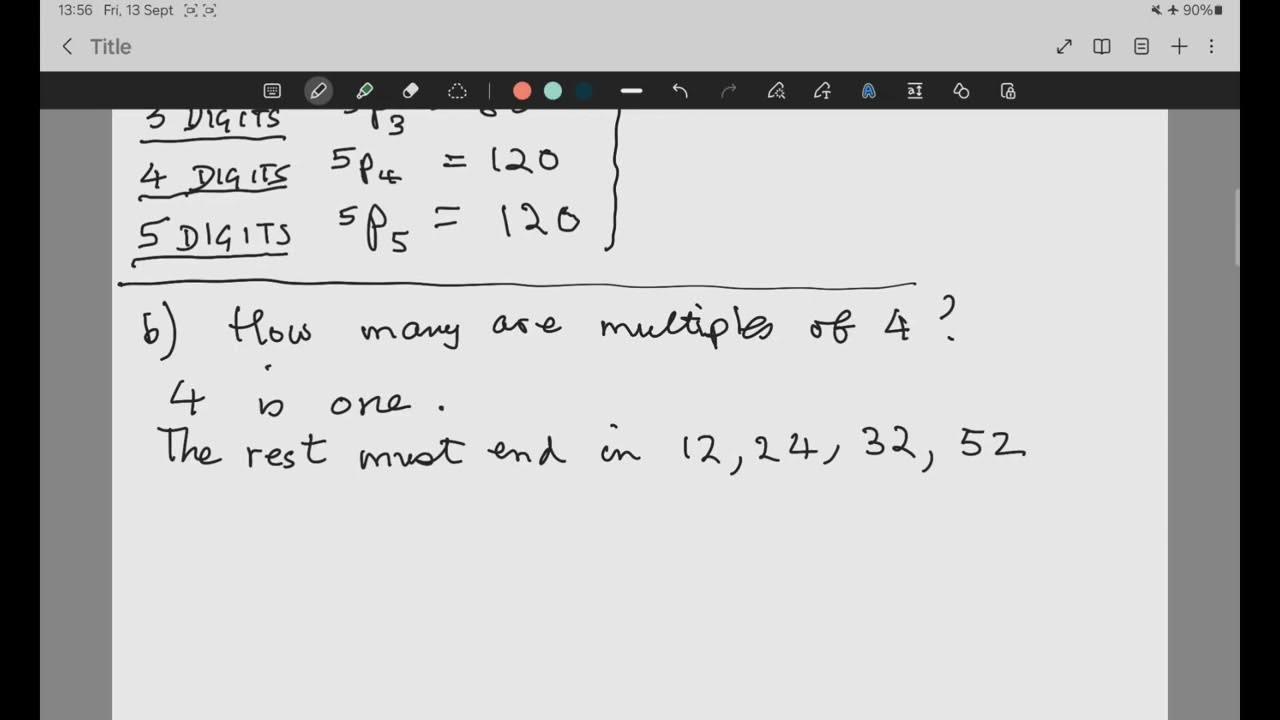 13:56 Fri, 13 Sept 90%
Title
3 DIGITS ⁵P₃
4 DIGITS ⁵P₄ = 120
5 DIGITS ⁵P₅ = 120
b) How many are multiples of 4?
4 is one.
The rest must end in 12, 24, 32, 52